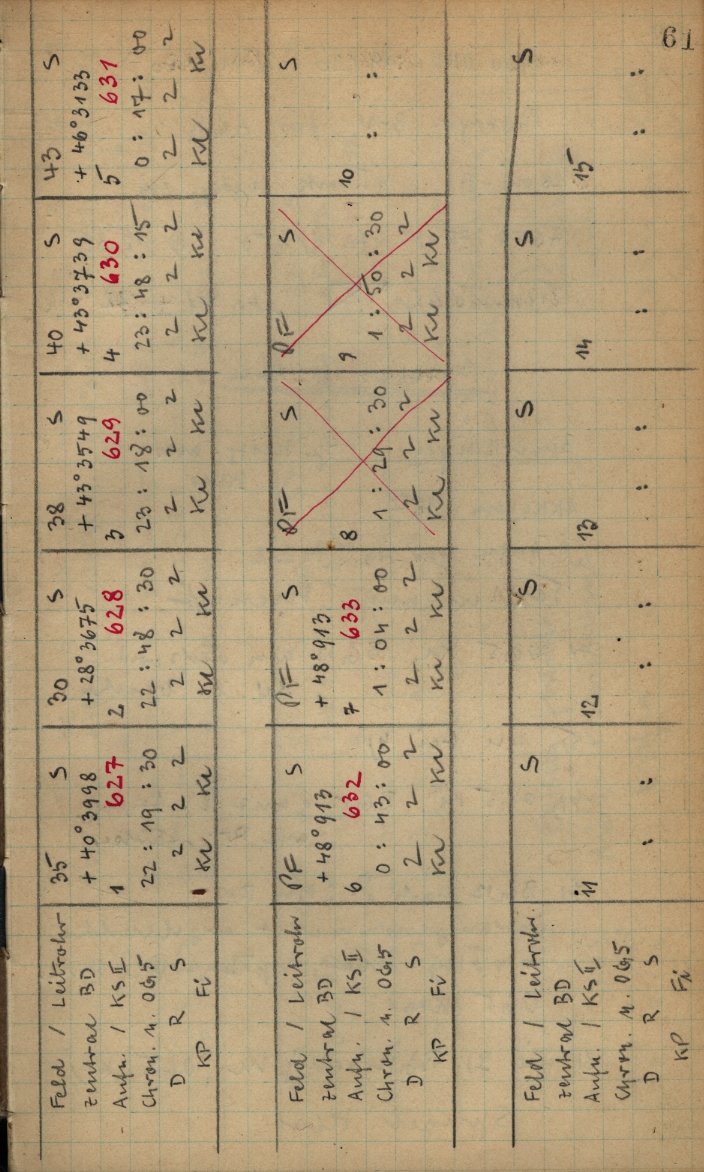 61
Feld / Leitrohr 35 S 30 S 38 S 40 S 43 S
Zentral BD + 40°3998 + 28°3675 + 43°3549 + 43°3739 + 46°3133
Aufn. / KS II 1 627 2 628 3 629 4 630 5 631
Chron. n. 06,5 22 : 19 : 30 22 : 48 : 30 23 : 18 : 00 23 : 48 : 15 0 : 17 : 00
D R S 2 2 2 2 2 2 2 2 2 2 2 2 2 2 2
KP Fi Kr Kr Kr Kr Kr Kr Kr Kr Kr Kr
Feld / Leitrohr PF S PF S PF S PF S S
Zentral BD + 48°913 + 48°913
Aufn. / KS II 6 632 7 633 8 9 10
Chron. n. 06,5 0 : 43 : 00 1 : 04 : 00 1 : 29 : 30 1 : 50 : 30 : :
D R S 2 2 2 2 2 2 2 2 2 2 2 2
KP Fi Kr Kr Kr Kr Kr Kr Kr Kr
Feld / Leitrohr. S S S S S
Zentral BD
Aufn. / KS II 11 12 13 14 15
Chron. n. 06,5 : : : : : : : : : :
D R S
KP Fi